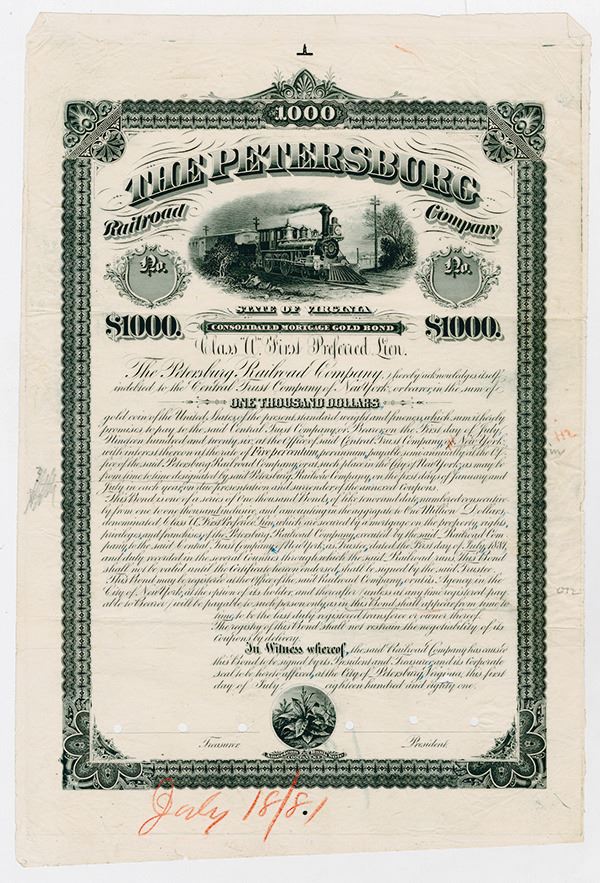 1000
THE PETERSBURG
Railroad Company
No. No.
STATE OF VIRGINIA
$1000. CONSOLIDATED MORTGAGE GOLD BOND $1000.
Class "A" First Preferred Lien.
The Petersburg Railroad Company, hereby acknowledges itself
indebted to the Central Trust Company of New York, or bearer, in the sum of
ONE THOUSAND DOLLARS
gold coin of the United States of the present standard weight and fineness, which sum it hereby
promises to pay to the said Central Trust Company, or Bearer, on the First day of July,
Nineteen hundred and twenty six, at the Office of said Central Trust Company, New York
with interest thereon at the rate of Five per centum, per annum, payable, semi annually at the Of-
fice of the said Petersburg Railroad Company, or at such place in the City of New York, as may be
from time to time designated by said Petersburg Railroad Company, on the first days of January and
July in each year, on the presentation and surrender of the annexed Coupons.
This Bond is one of a series of One thousand Bonds, of like tenor and date, numbered consecutive-
ly from one to one thousand inclusive and amounting in the aggregate to One Million Dollars,
denominated Class A. First Preferred Lien, which are secured by a mortgage on the property, rights,
privileges and franchises, of the Petersburg Railroad Company, executed by the said Railroad Com-
pany, to the said Central Trust Company, of New York, as Trustee, dated the First day of July, 1881,
and duly recorded in the several Counties through which the said Railroad runs. This Bond
shall not be valid until the Certificate hereon endorsed, shall be signed by the said Trustee.
This Bond may be registered at the Office of the said Railroad Company, or at its Agency in the
City of New York, at the option of its holder, and thereafter (unless at any time registered pay-
able to Bearer) will be payable to such person only, as in this Bond shall appear from time to
time, to be the last duly registered transferee or owner thereof.
The registry of this Bond shall not restrain the negotiability of its
Coupons by delivery.
In Witness whereof, the said Railroad Company has caused
this Bond to be signed by its President and Treasurer, and its Corporate
seal to be hereto affixed, at the City of Petersburg, Virginia, this first
day of July eighteen hundred and eighty one.
Treasurer President
July 18/81